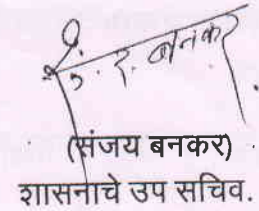 सं. र. बनकर
(संजय बनकर)
शासनाचे उप सचिव.